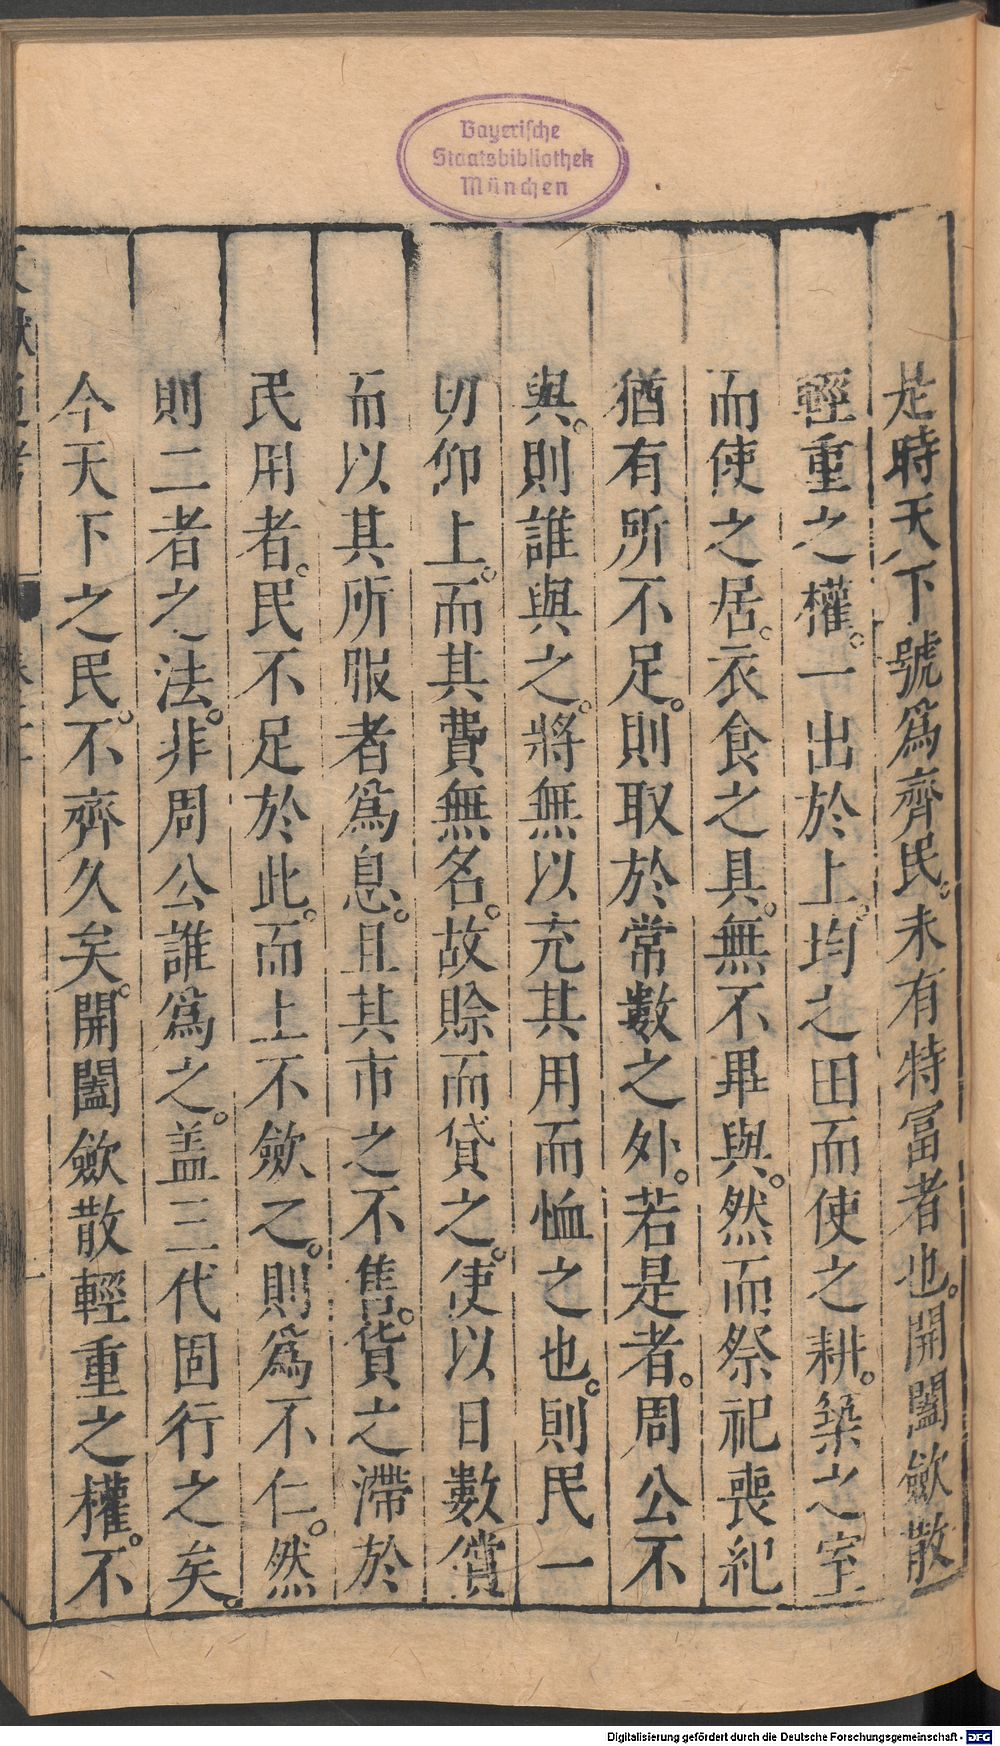 Bayerische
Staatsbibliothek
München
是時天下號為齊民。未有特富者也。開闔歛散
輕重之權。一出於上。均之田而使之耕。築之室
而使之居。衣食之具。無不畢與。然而祭祀喪紀
猶有所不足。則取於常數之外。若是者。周公不
與。則誰與之。將無以充其用而恤之也。則民一
切仰上。而其費無名。故賒而貸之。使以日數償
而以其所服者為息。且其市之不售。貨之滯於
民用者。民不足於此。而上不歛之。則為不仁。然
則二者之法。非周公誰為之。盖三代固行之矣。
今天下之民。不齊久矣。開闔歛散輕重之權。不
Digitalisierung gefördert durch die Deutsche Forschungsgemeinschaft - DFG